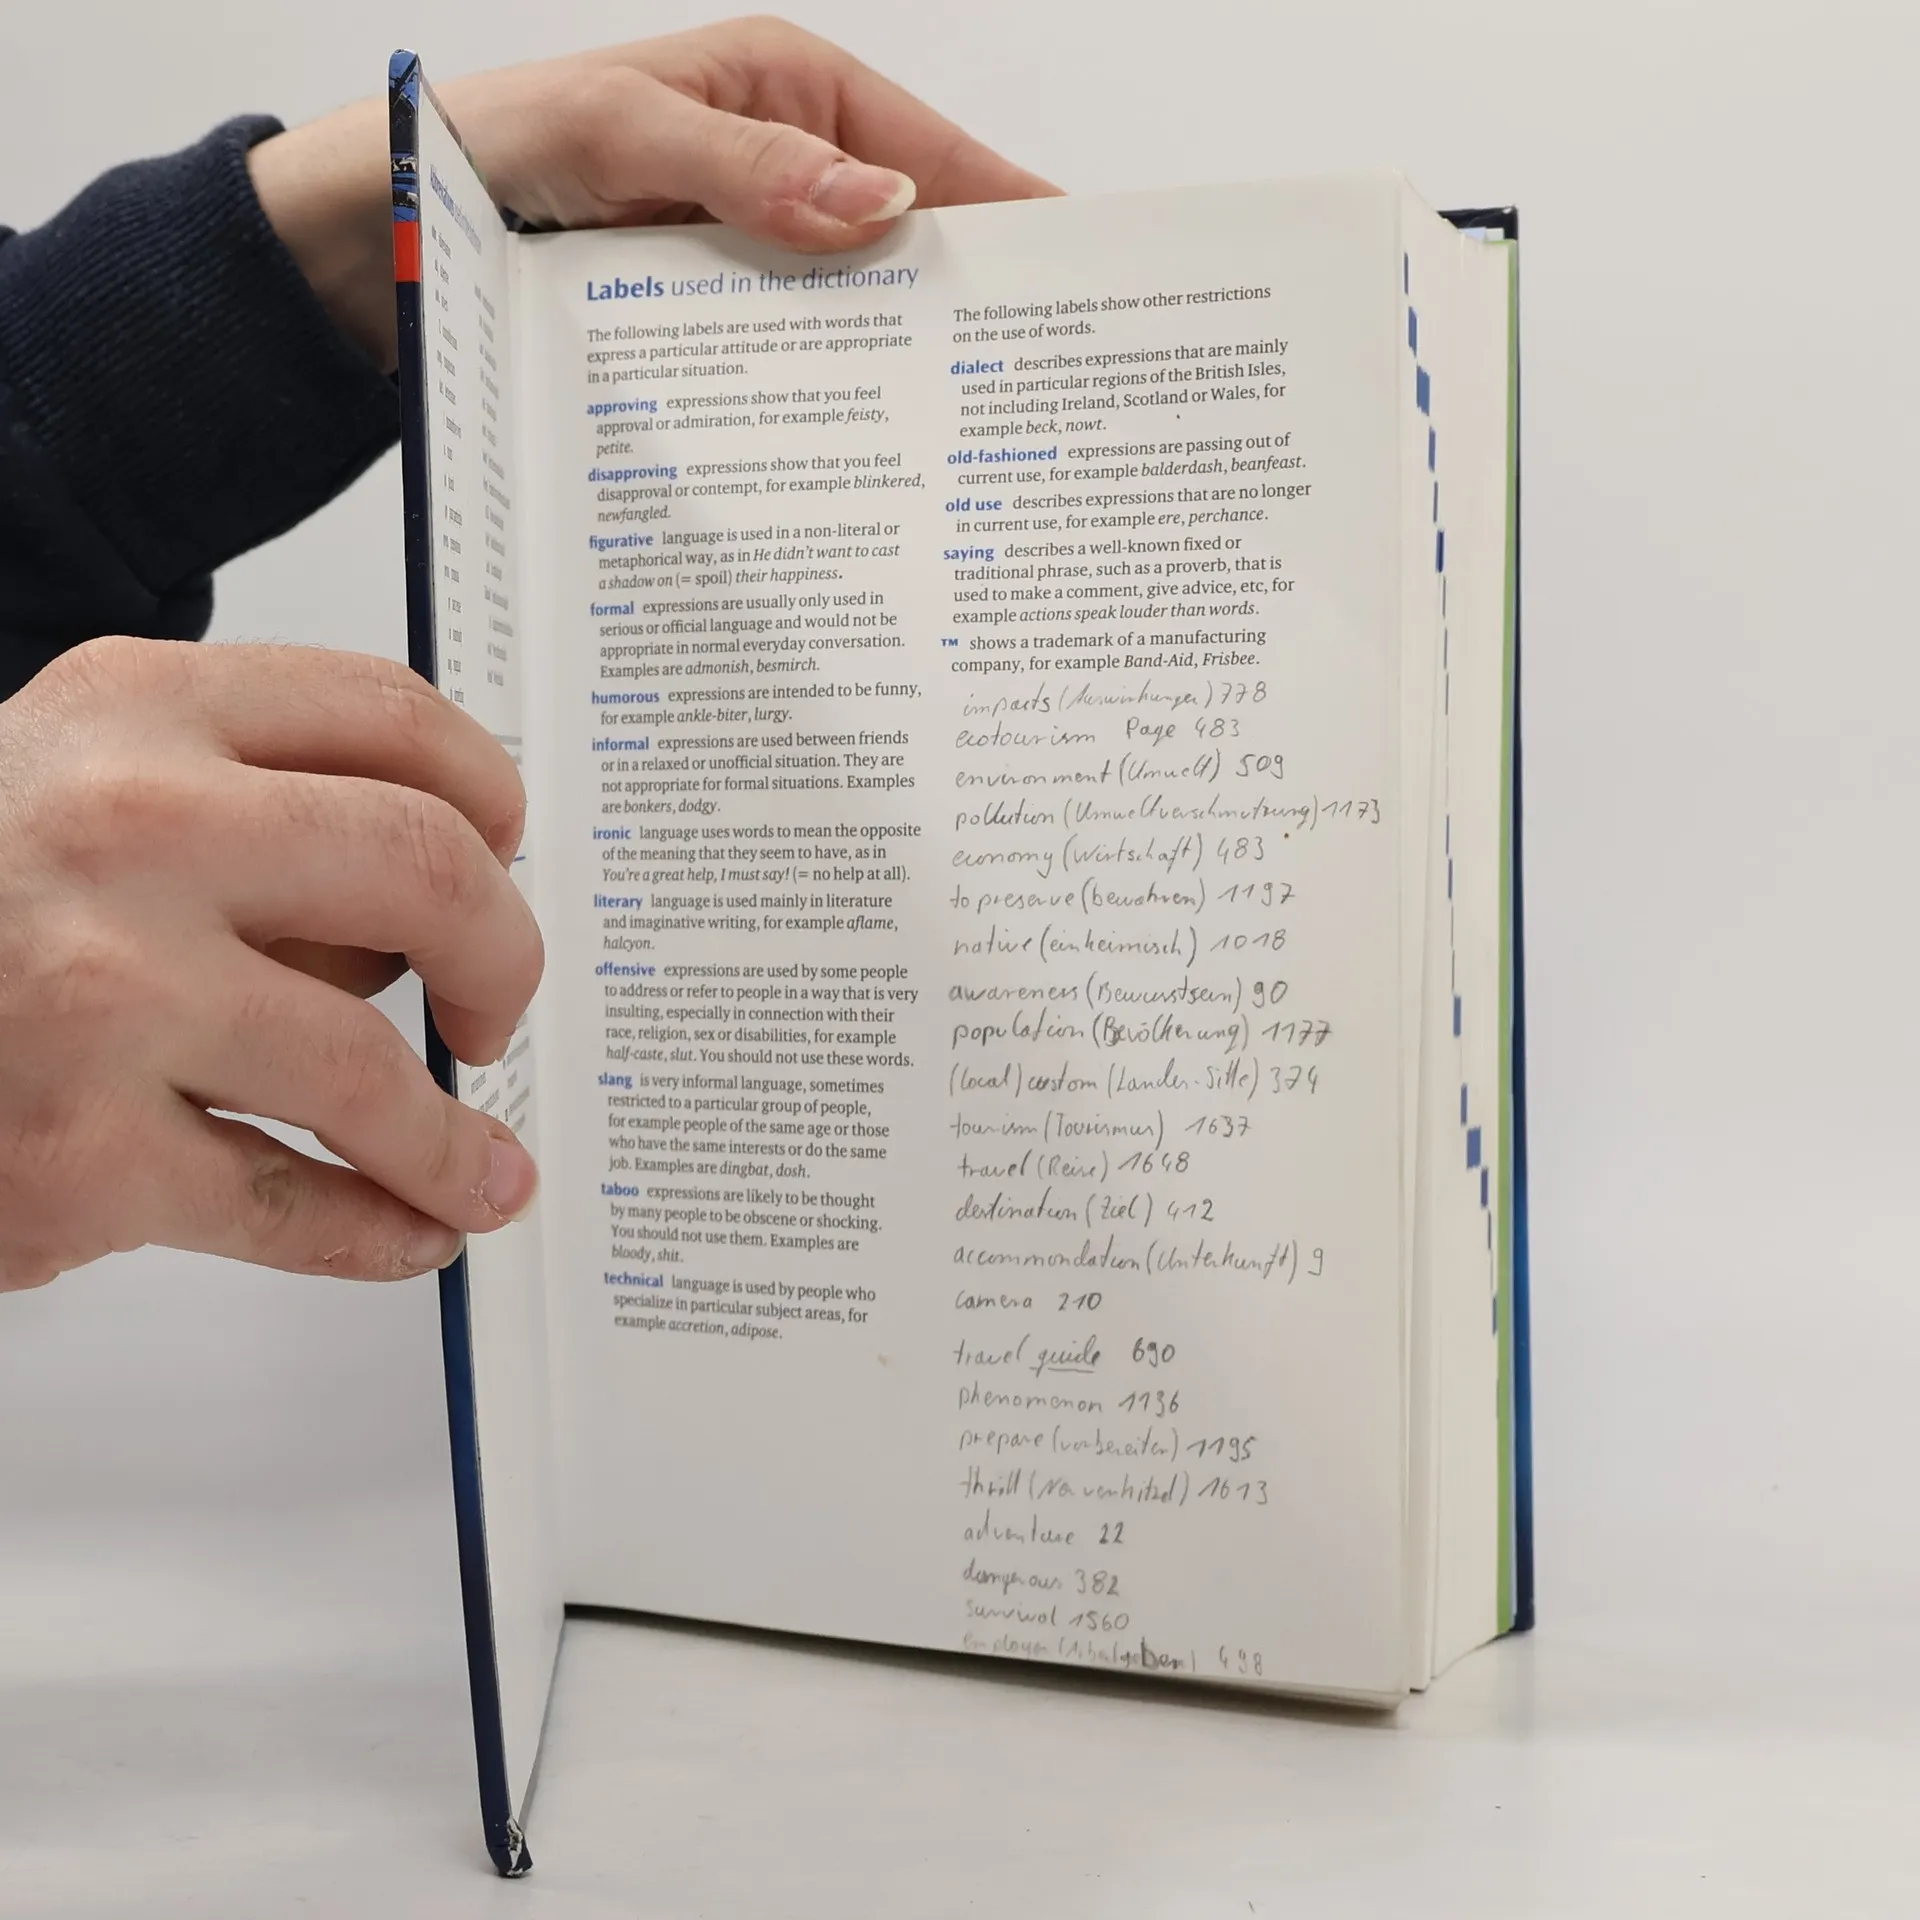 Labels used in the dictionary
The following labels are used with words that
express a particular attitude or are appropriate
in a particular situation.
approving expressions show that you feel
approval or admiration, for example feisty,
petite.
disapproving expressions show that you feel
disapproval or contempt, for example blinkered,
newfangled.
figurative language is used in a non-literal or
metaphorical way, as in He didn't want to cast
a shadow on (= spoil) their happiness.
formal expressions are usually only used in
serious or official language and would not be
appropriate in normal everyday conversation.
Examples are admonish, besmirch.
humorous expressions are intended to be funny,
for example ankle-biter, lurgy.
informal expressions are used between friends
or in a relaxed or unofficial situation. They are
not appropriate for formal situations. Examples
are bonkers, dodgy.
ironic language uses words to mean the opposite
of the meaning that they seem to have, as in
You're a great help, I must say! (= no help at all).
literary language is used mainly in literature
and imaginative writing, for example aflame,
halcyon.
offensive expressions are used by some people
to address or refer to people in a way that is very
insulting, especially in connection with their
race, religion, sex or disabilities, for example
half-caste, slut. You should not use these words.
slang is very informal language, sometimes
restricted to a particular group of people,
for example people of the same age or those
who have the same interests or do the same
job. Examples are dingbat, dosh.
taboo expressions are likely to be thought
by many people to be obscene or shocking.
You should not use them. Examples are
bloody, shit.
technical language is used by people who
specialize in particular subject areas, for
example accretion, adipose.
The following labels show other restrictions
on the use of words.
dialect describes expressions that are mainly
used in particular regions of the British Isles,
not including Ireland, Scotland or Wales, for
example beck, nowt.
old-fashioned expressions are passing out of
current use, for example balderdash, beanfeast.
old use describes expressions that are no longer
in current use, for example ere, perchance.
saying describes a well-known fixed or
traditional phrase, such as a proverb, that is
used to make a comment, give advice, etc, for
example actions speak louder than words.
TM shows a trademark of a manufacturing
company, for example Band-Aid, Frisbee.
impacts (Auswirkungen) 778
ecotourism Page 483
environment (Umwelt) 509
pollution (Umweltverschmutzung) 1173
economy (Wirtschaft) 483
to preserve (bewahren) 1197
native (einheimisch) 1018
awareness (Bewusstsein) 90
population (Bevölkerung) 1177
(local) custom (Landes-Sitte) 374
tourism (Tourismus) 1637
travel (Reise) 1648
destination (Ziel) 412
accommondation (Unterkunft) 9
camera 210
travel guide 690
phenomenon 1136
prepare (vorbereiten) 1195
thrill (Nervenkitzel) 1613
adventure 22
dangerous 382
survival 1560
498